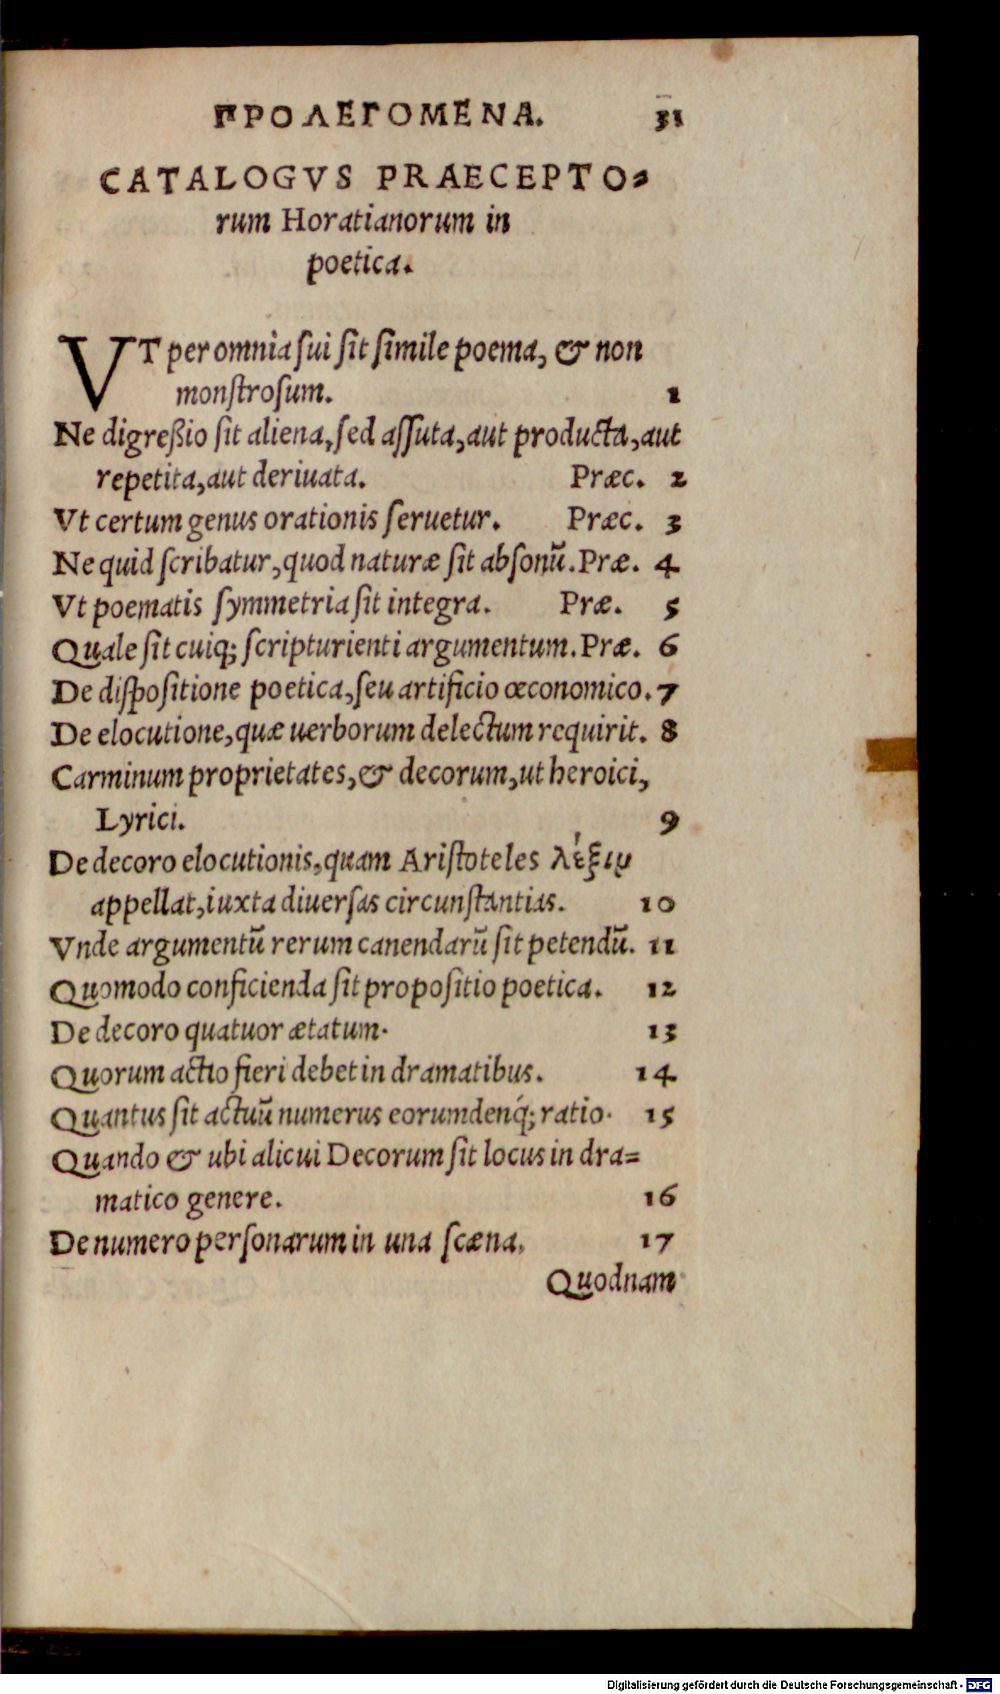 ΠΡΟΛΕΓΟΜΕΝΑ. 31
CATALOGVS PRAECEPTO-
rum Horatianorum in
poetica.
VT per omnia sui sit simile poema, & non
monstrosum. 1
Ne digreßio sit aliena, sed assuta, aut producta, aut
repetita, aut deriuata. Præc. 2
Vt certum genus orationis seruetur. Præc. 3
Ne quid scribatur, quod naturæ sit absonū. Præ. 4
Vt poematis symmetria sit integra. Præ. 5
Quale sit cuiq; scripturienti argumentum. Præ. 6
De dispositione poetica, seu artificio œconomico. 7
De elocutione, quæ uerborum delectum requirit. 8
Carminum proprietates, & decorum, ut heroici,
Lyrici. 9
De decoro elocutionis, quam Aristoteles λέξιν
appellat, iuxta diuersas circunstantias. 10
Vnde argumentū rerum canendarū sit petendū. 11
Quomodo conficienda sit propositio poetica. 12
De decoro quatuor ætatum. 13
Quorum actio fieri debet in dramatibus. 14
Quantus sit actuū numerus eorumdenq́; ratio. 15
Quando & ubi alicui Decorum sit locus in dra=
matico genere. 16
De numero personarum in una scæna. 17
Quodnam
Digitalisierung gefördert durch die Deutsche Forschungsgemeinschaft - DFG